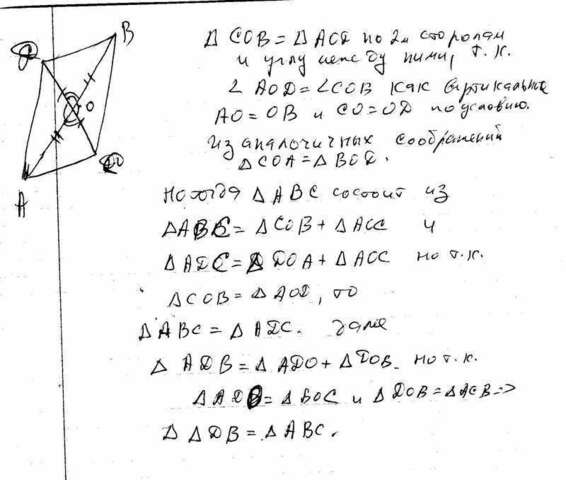 B
O
A
Δ COB = Δ AOD по 2м сторонам
и углу между ними, т.к.
∠ AOD = ∠COB как вертикальные
AO = OB и CO = OD по условию.
Из аналогичных соображений
Δ COA = Δ BOD.
Но тогда Δ ABC состоит из
Δ ABC = Δ COB + Δ AOC и
Δ ADC = Δ DOA + Δ AOC но т.к.
Δ COB = Δ AOD, то
Δ ABC = Δ ADC. далее
Δ ADB = Δ ADO + Δ DOB. но т.к.
Δ ADO = Δ BOC и Δ DOB = Δ AOB =>
Δ ADB = Δ ABC.